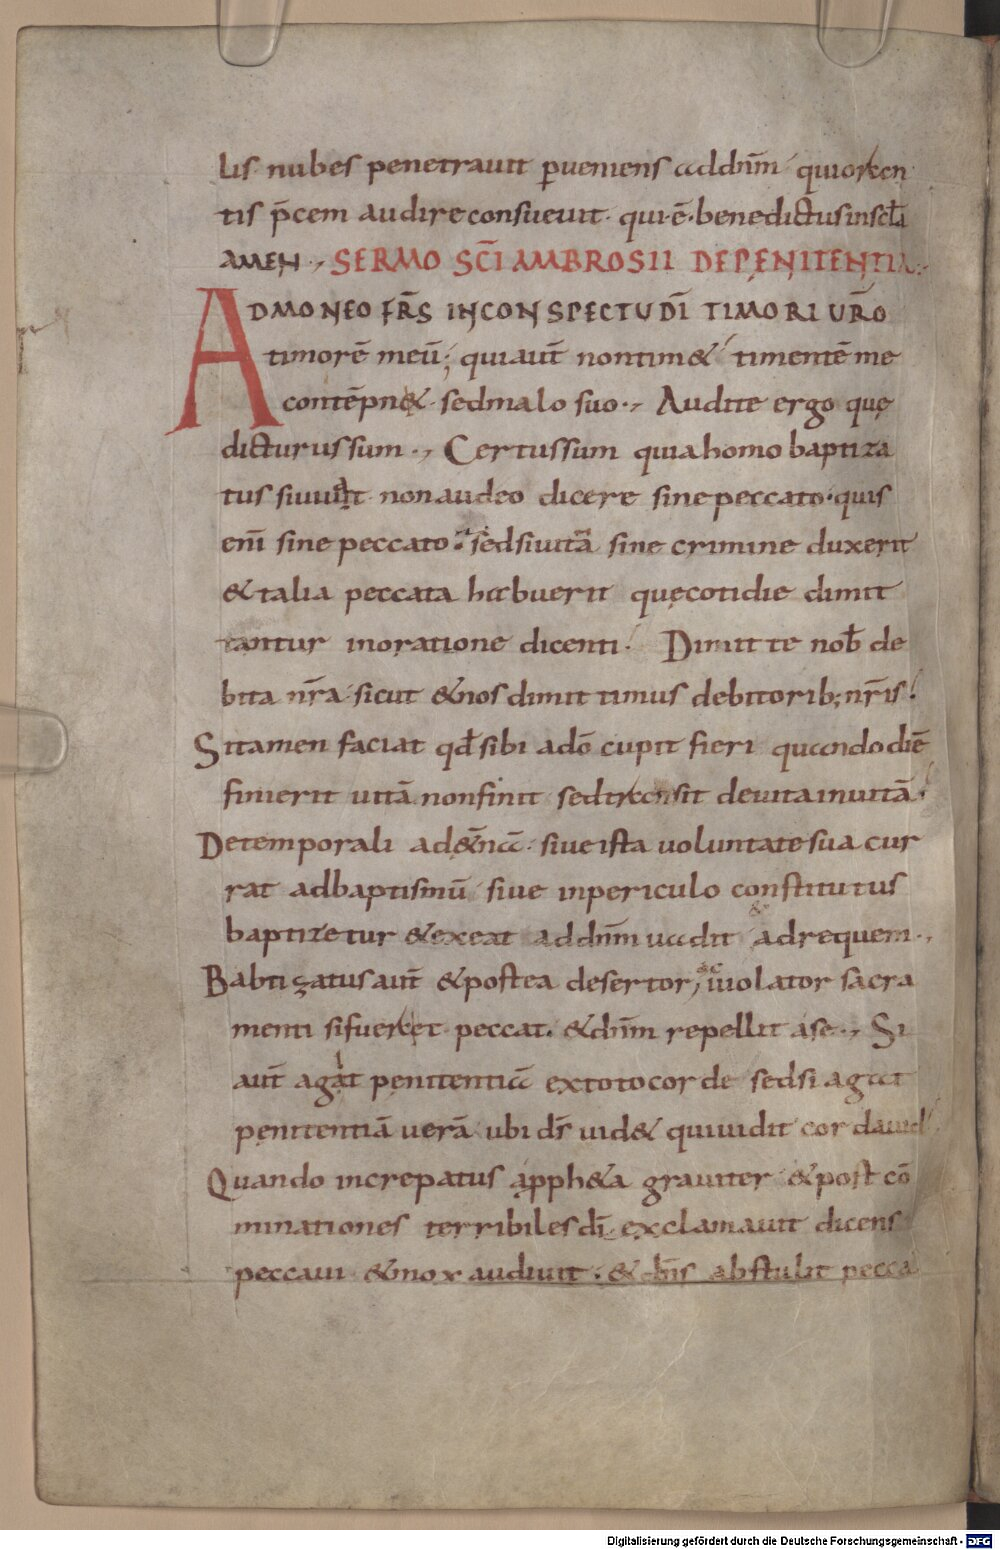 lis nubes penetrauit ꝑueniens addn̄m qui oran
tis p̄cem audire consueuit· qui·ē·benedictus in scl̄a
AMEN·, SERMO SC̄I AMBROSII DE PENITENTIA·,
ADMONEO FR̄S IN CONSPECTU DĪ TIMORI UR̄O
timorē meū; qui aut̄ non tim& timentē me
contēpn&· sed malo suo·, Audite ergo quę
dicturus sum·, Certus sum quia homo baptiza
tus si uiuit· non audeo dicere sine peccato· quis
enī sine peccato· sed si uitā sine crimine duxerit
& talia peccata habuerit quę cotidie dimit
tantur in oratione dicenti· Dimitte nob̄ de
bita nr̄a· sicut & nos dimittimus debitorib; nr̄is·
Si tamen faciat qd̄ sibi adō cupit fieri quando diē
finierit uitā non finit sed transit de uita in uitā·
De temporali ad &̄nā· siue ista uoluntate sua cur
rat ad baptismū siue in periculo constitutus
baptizetur & exeat ad dn̄m uadit ad requem·,
Babtizatus aut̄ & postea desertor, ac uiolator sacra
menti si fuerit et peccat· & dn̄m repellit a se·, Si
aut̄ agat penitentiā ex toto corde sed si agat
penitentiā uerā ubi dr̄ uid& qui uidit cor dauid·
Quando increpatus a pph&a grauiter & post cō
minationes terribiles dī· exclamauit dicens
peccaui· & mox audiuit· & dn̄s abstulit pecca
Digitalisierung gefördert durch die Deutsche Forschungsgemeinschaft - DFG